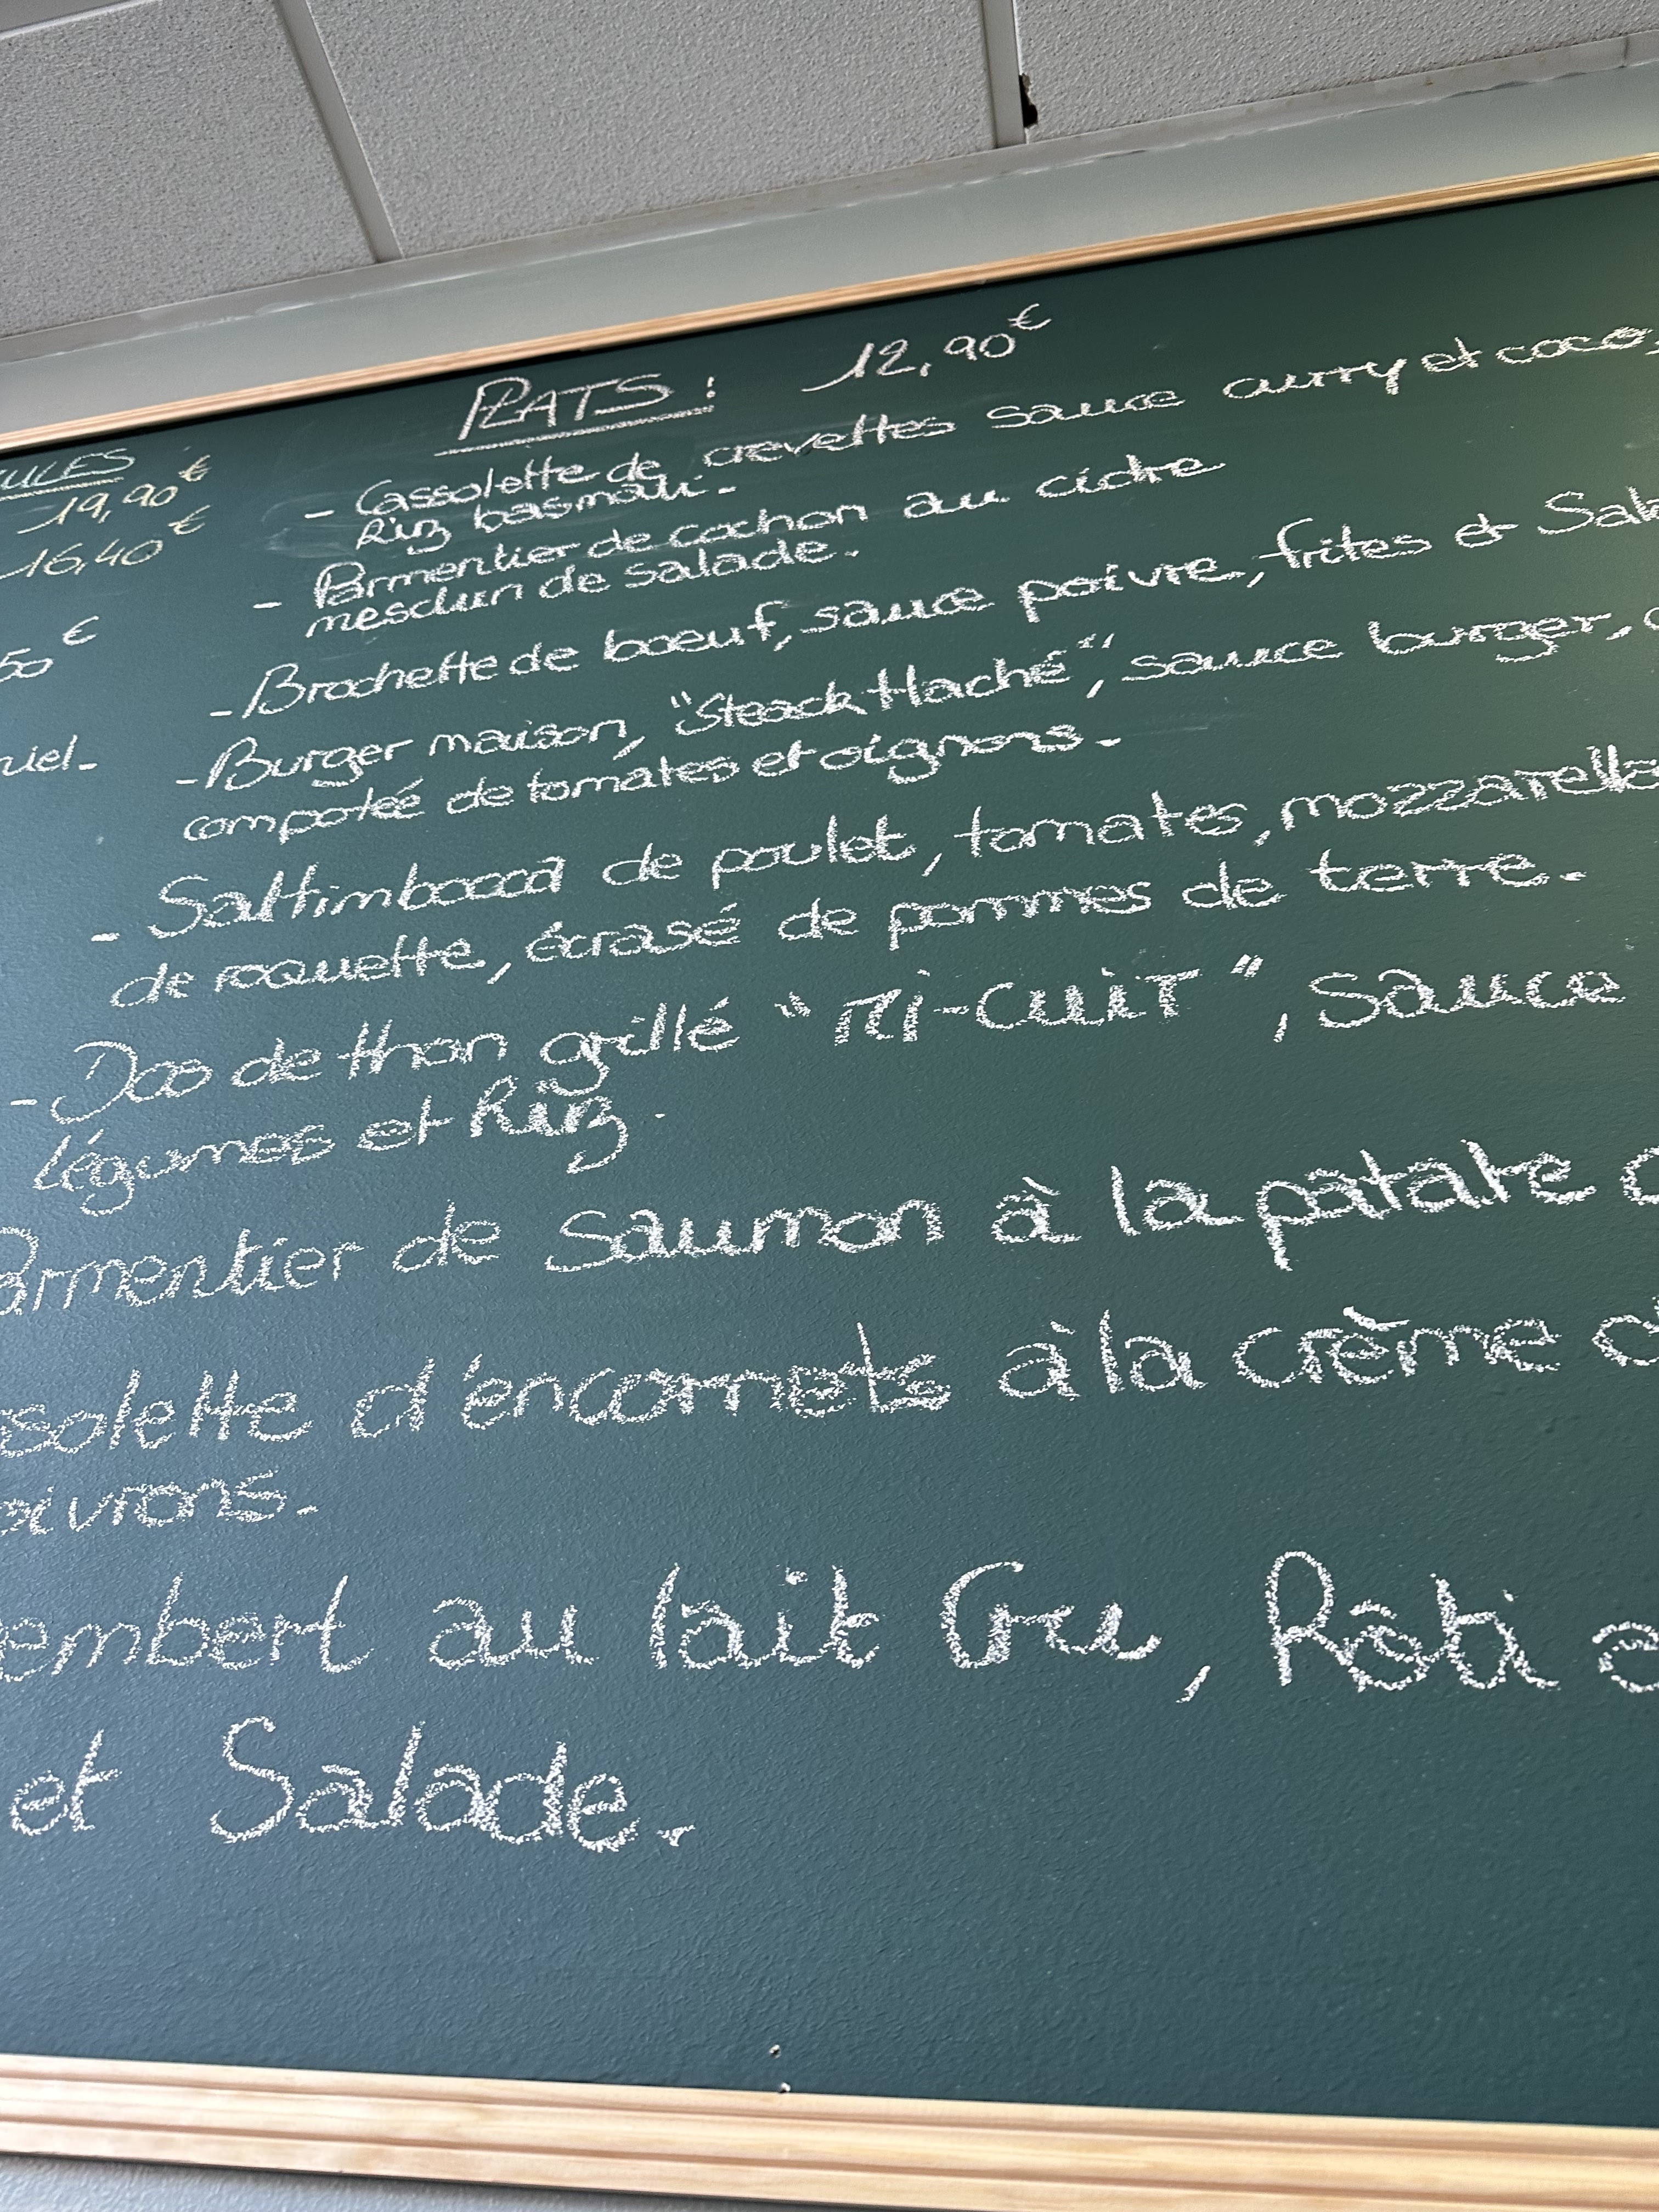 PLATS : 12,90€
ULES
19,90€
16,40€
50€
riel.
- Cassolette de crevettes sauce curry et coco,
Riz basmati.
- Parmentier de cochon au cidre
mesclun de salade.
- Brochette de boeuf, sauce poivre, frites et Sala
- Burger maison, "Steack Haché", sauce burger,
compotée de tomates et oignons.
- Saltimbocca de poulet, tomates, mozzarella
de roquette, écrasé de pommes de terre.
- Dos de thon grillé "MI-CUIT", sauce
légumes et Riz.
Parmentier de saumon à la patate d
ssolette d'encornets à la crème d
oivrons.
embert au lait Cru, Rôti a
et Salade.